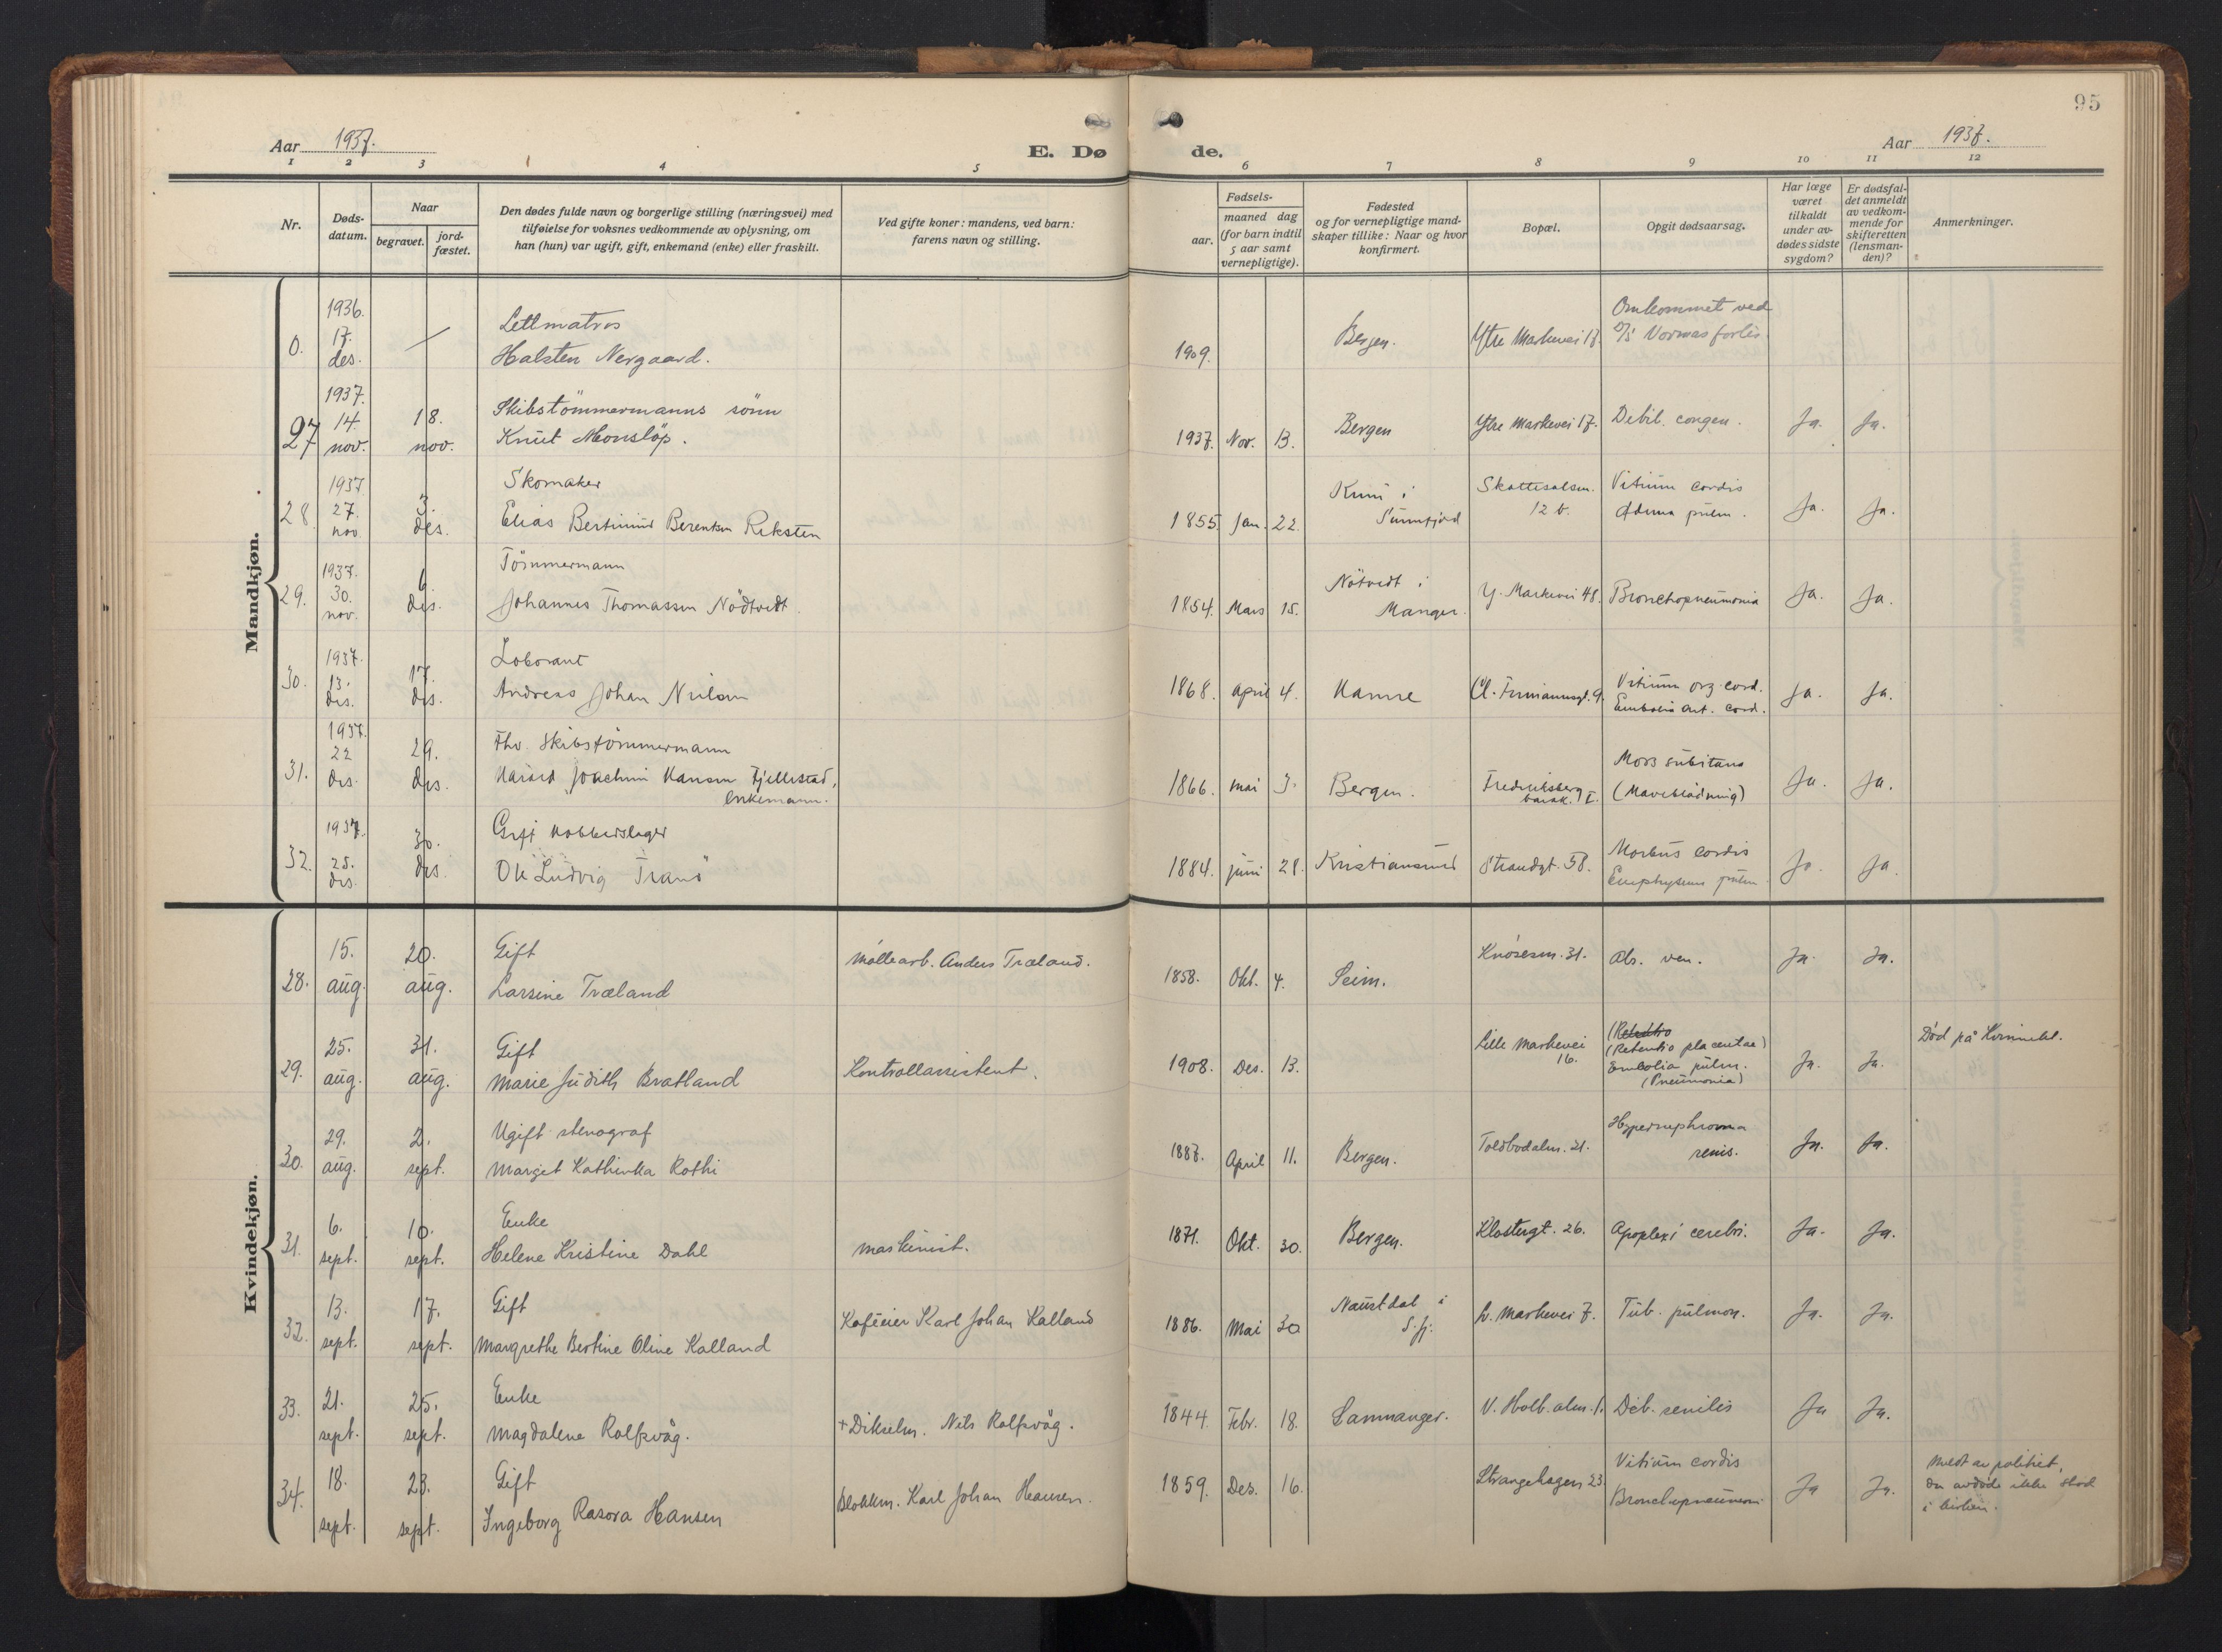 95
Aar 1937.
E. Dø de.
Aar 1937.
1 2 3 4 5 6 7 8 9 10 11 12
Nr.
Døds-
datum.
Naar
begravet.
jord-
fæstet.
Den dødes fulde navn og borgerlige stilling (næringsvei) med
tilføielse for voksnes vedkommende av oplysning, om
han (hun) var ugift, gift, enkemand (enke) eller fraskilt.
Ved gifte koner: mandens, ved barn:
farens navn og stilling.
Fødsels-
aar.
maaned dag
(for barn indtil
5 aar samt
vernepligtige).
Fødested
og for vernepligtige mand-
skaper tillike: Naar og hvor
konfirmert.
Bopæl.
Opgit dødsaarsag.
Har læge
været
tilkaldt
under av-
dødes sidste
sygdom?
Er dødsfal-
det anmeldt
av vedkom-
mende for
skifteretten
(lensman-
den)?
Anmerkninger.
Mandkjøn.
1936. Lettmatros Omkommet ved
0. 17. des. Halsten Nergaard. 1909. Bergen. Ytre Markevei 17. D/S Vormas forlis.
1937. Skibstömmermanns sönn
27 14. nov. 18. nov. Knut Monslöp. 1937. Nov. 13. Bergen Ytre Markevei 17. Debil. congen. Ja. Ja.
1937 Skomaker Kinn i Skottesalsm. Vitium cordis
28. 27. nov. 3. des. Elias Bertinius Berentsen Reksten 1855 Jan. 22. Sunnfjord 12 b. Ödema pulm. Ja. Ja.
1937. Tömmermann Nötvedt i
29. 30. nov. 6. des. Johannes Thomassen Nödtvedt. 1854. Mars 15. Manger. Y. Markevei 48. Bronchopneumonia Ja. Ja.
1937. Laborant
30. 13. des. 17. des. Andreas Johan Nilsen 1868. April 4. Hamre 9. Vitium org. cord. Ja. Ja.
Embolia art. cord.
1937. Fhv. Skibstömmermann Mors subitana
31. 22 des. 29. des. Harald Joachim Hansen Fjellestad, 1866. mai 3. Bergen. Fredriksberg (Maveblödning) Ja. Ja.
enkemann. barak. I.
1937. Gift Kobberslager Morbus cordis
32. 25. des. 30. des. Ole Ludvig Tranö 1884. juni 28. Kristiansund Strandgt. 58. Emphysem pulm. Ja. Ja.
Kvindekjøn.
15. 20. Gift Möllearb. Anders Træland. Knösesm. 31.
28. aug. aug. Larsine Træland 1858. Okt. 4. Seim. Als. ven. Ja. Ja.
25. 31. Gift Lille Markevei 16. (Retentio placentae) Död på Kvinnekl.
29. aug. aug. Marie Judith Bratland Kontrollassistent. 1908. Des. 13. Embolia pulm. Ja. Ja.
(Pneumonia)
29. 2. Ugift stenograf Hypernephroma
30. aug. sept. Marget Kathinka Rothi 1887. April 11. Bergen. Toldbodalm. 21. renis. Ja. Ja.
6. 10. Enke
31. sept. sept. Helene Kristine Dahl maskinist. 1871. Okt. 30. Bergen. Klostergt. 26. Apoplexi cerebri. Ja. Ja.
13. 17. Gift Kaféeier Karl Johan Kalland Naustdal i
32. sept. sept. Margrethe Bertine Oline Kalland 1886. Mai 30 S.fj. L. Markevei 7. Tub. pulmon. Ja. Ja.
21. 25. Enke
33. sept. sept. Magdalene Rolfsvåg. + Dikselm. Nils Rolfsvåg. 1844. Febr. 18. Samnanger. V. Holb. alm. 1. Deb. senilis Ja Ja.
18. 23. Gift Vitium cordis Meldt av politiet,
34. sept. sept. Ingeborg Rasora Hansen Blokkm. Karl Johan Hansen. 1859. Des. 16. Strangehagen 23. Bronchopneumoni Ja Ja. da avdöde ikke stod
i kirken.